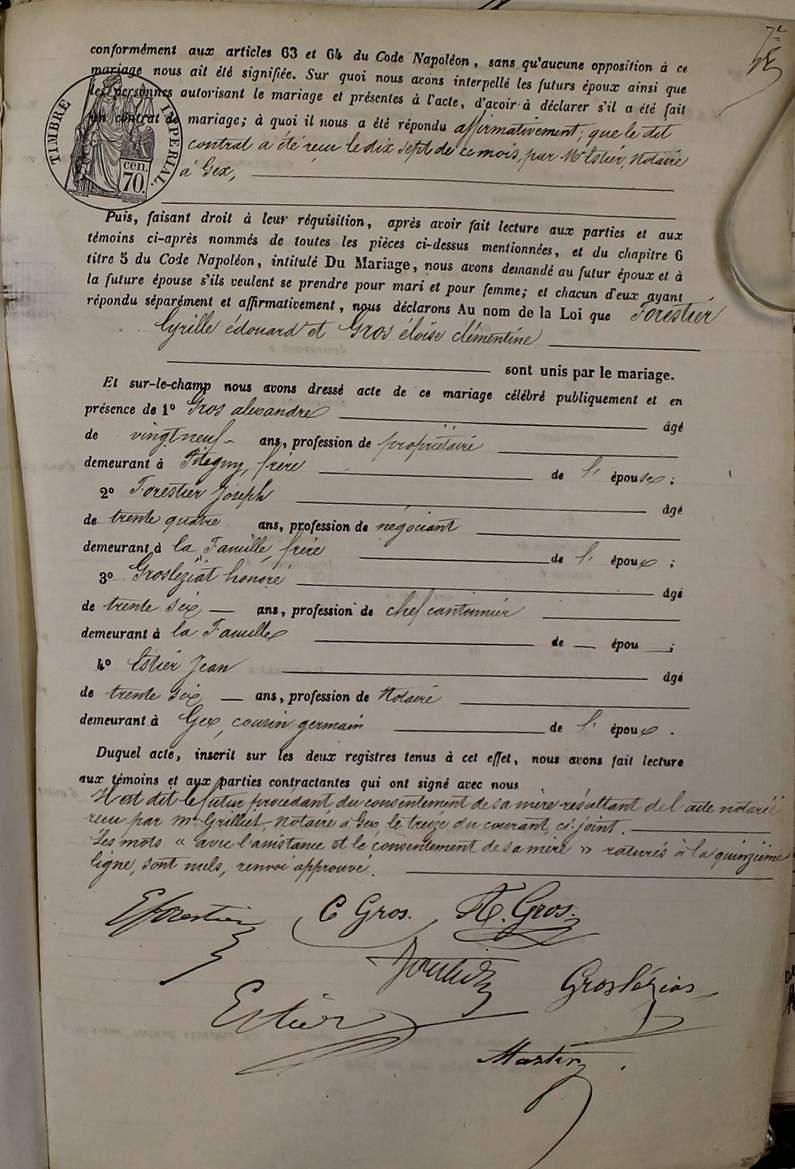 7e
conformément aux articles 63 et 64 du Code Napoléon, sans qu'aucune opposition à ce
mariage nous ait été signifiée. Sur quoi nous avons interpellé les futurs époux ainsi que
les personnes autorisant le mariage et présentes à l'acte, d'avoir à déclarer s'il a été fait
un contrat de mariage; à quoi il nous a été répondu affirmativement, que le dit
contrat a été reçu le dix sept de ce mois, par Me Estier, Notaire
à Gex,
TIMBRE IMPERIAL.
cen.
70.
Puis, faisant droit à leur réquisition, après avoir fait lecture aux parties et aux
témoins ci-après nommés de toutes les pièces ci-dessus mentionnées, et du chapitre 6
titre 5 du Code Napoléon, intitulé Du Mariage, nous avons demandé au futur époux et à
la future épouse s'ils veulent se prendre pour mari et pour femme; et chacun d'eux ayant
répondu séparément et affirmativement, nous déclarons Au nom de la Loi que Forestier
Cyrille édouard et Gros éloïse clémentine
sont unis par le mariage.
Et sur-le-champ nous avons dressé acte de ce mariage célébré publiquement et en
présence de 1º Gros alexandre âgé
de vingt neuf ans, profession de propriétaire
demeurant à Pitegny, frère de l' épouse;
2º Forestier Joseph âgé
de trente quatre ans, profession de négociant
demeurant à la Faucille, frère de l' époux;
3º Grosléziat honoré âgé
de trente six ans, profession de chef cantonnier
demeurant à la Faucille de épou ;
4º Estier Jean âgé
de trente six ans, profession de Notaire
demeurant à Gex, cousin germain de l' époux.
Duquel acte, inscrit sur les deux registres tenus à cet effet, nous avons fait lecture
aux témoins et aux parties contractantes qui ont signé avec nous
Il est dit le futur procédant du consentement de sa mère résultant de l'acte notarié
reçu par me Grillet, Notaire à Gex, le treize du courant, ci-joint.
Les mots « avec l'assistance et le consentement de sa mère » raturés à la quinzième
ligne, sont nuls, renvoi approuvé.
E forestier C Gros. A. Gros.
Grosléziat
Estier
Martin